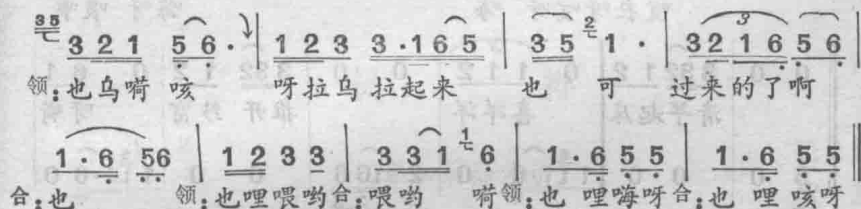 35 321 56· 123 3·165 35 2 1· 3 3216 56
领：也乌嗬 咳 呀拉乌 拉起来 也 可 过来的了啊
1·6 56 12 3 3 331 1 6 1·6 5 5 1·6 5 5
合：也 领：也哩喂哟合：喂哟 嗬领：也 哩嗨呀合：也 哩 咳呀